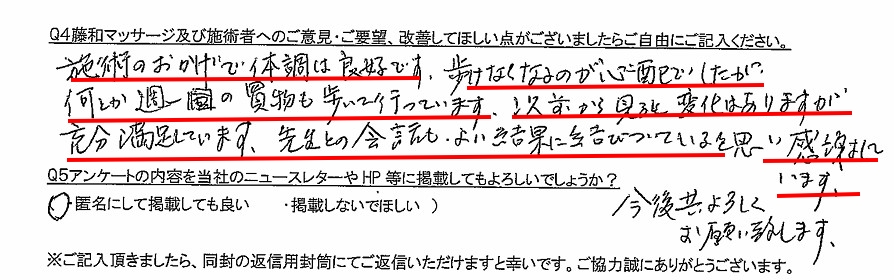 Q4藤和マッサージ及び施術者へのご意見・ご要望、改善してほしい点がございましたらご自由にご記入ください。
施術のおかげで体調は良好です。歩けなくなるのが心配でしたが
何とか週一回の買物も歩いて行っています。以前から見ると変化はありますが
充分満足しています。先生との会話も、よい結果に結びついていると思い感謝して
います。
Q5アンケートの内容を当社のニュースレターやHP等に掲載してもよろしいでしょうか？
匿名にして掲載しても良い ・掲載しないでほしい ）
今後共よろしく
お願い致します。
※ご記入頂きましたら、同封の返信用封筒にてご返信いただけますと幸いです。ご協力誠にありがとうございます。